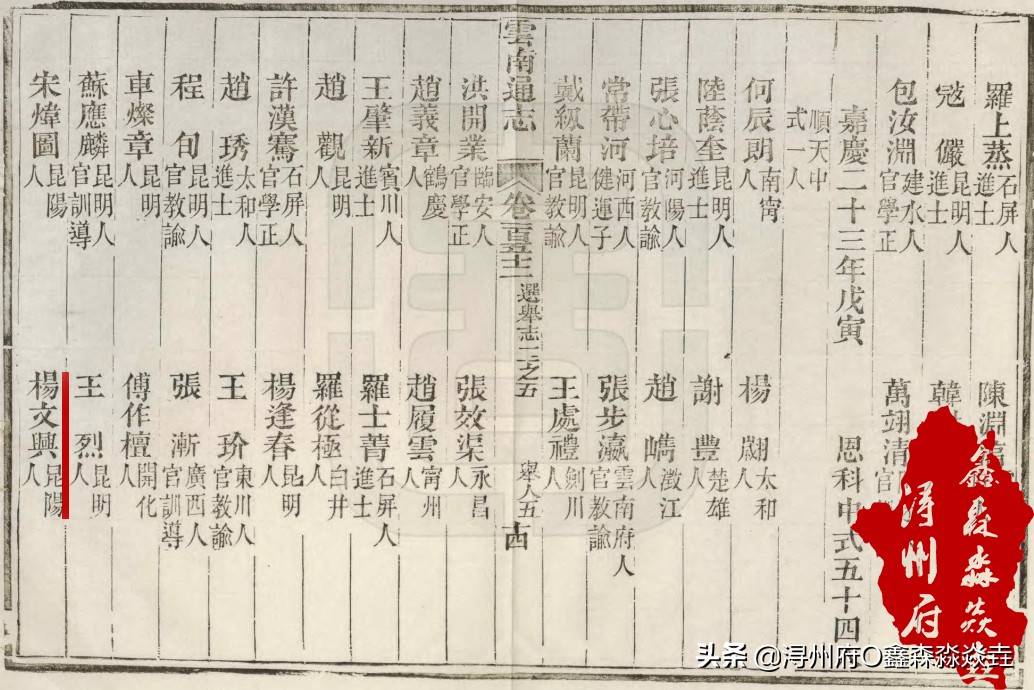 羅上蒸 石屏人進士
陳淵
寇儼 昆明人進士
韓
包汝淵 建水人官學正
萬翊清 官
嘉慶二十三年戊寅 恩科中式五十四
順天中式一人
何辰朗 南甯人
楊翽 太和人
陸蔭奎 昆明人進士
謝豐 楚雄人
張心培 河陽人官教諭
趙嶲 澂江人
常帶河 河西人健運子
張步瀛 雲南府人官教諭
戴紉蘭 昆明人官教諭
王處禮 劍川人
雲南通志 卷一百四十二 選舉志二之五 舉人五 十四
洪開業 臨安人官學正
張效渠 永昌人
趙義章 鶴慶人
趙履雲 甯州人
王肇新 賓川人進士
羅士菁 石屏人進士
趙觀 昆明人
羅從極 白井人
許漢騫 石屏人官學正
楊逢春 昆明人
趙琇 太和人進士
王玠 東川人官教諭
程旬 昆明人官教諭
張漸 廣西人官訓導
車燦章 昆明人
傅作檀 開化人
蘇應麟 昆明人官訓導
王烈 昆明人
宋煒圖 昆陽人
楊文興 昆陽人
鑫森淼焱垚
浔州府
头条 @浔州府O鑫森淼焱垚